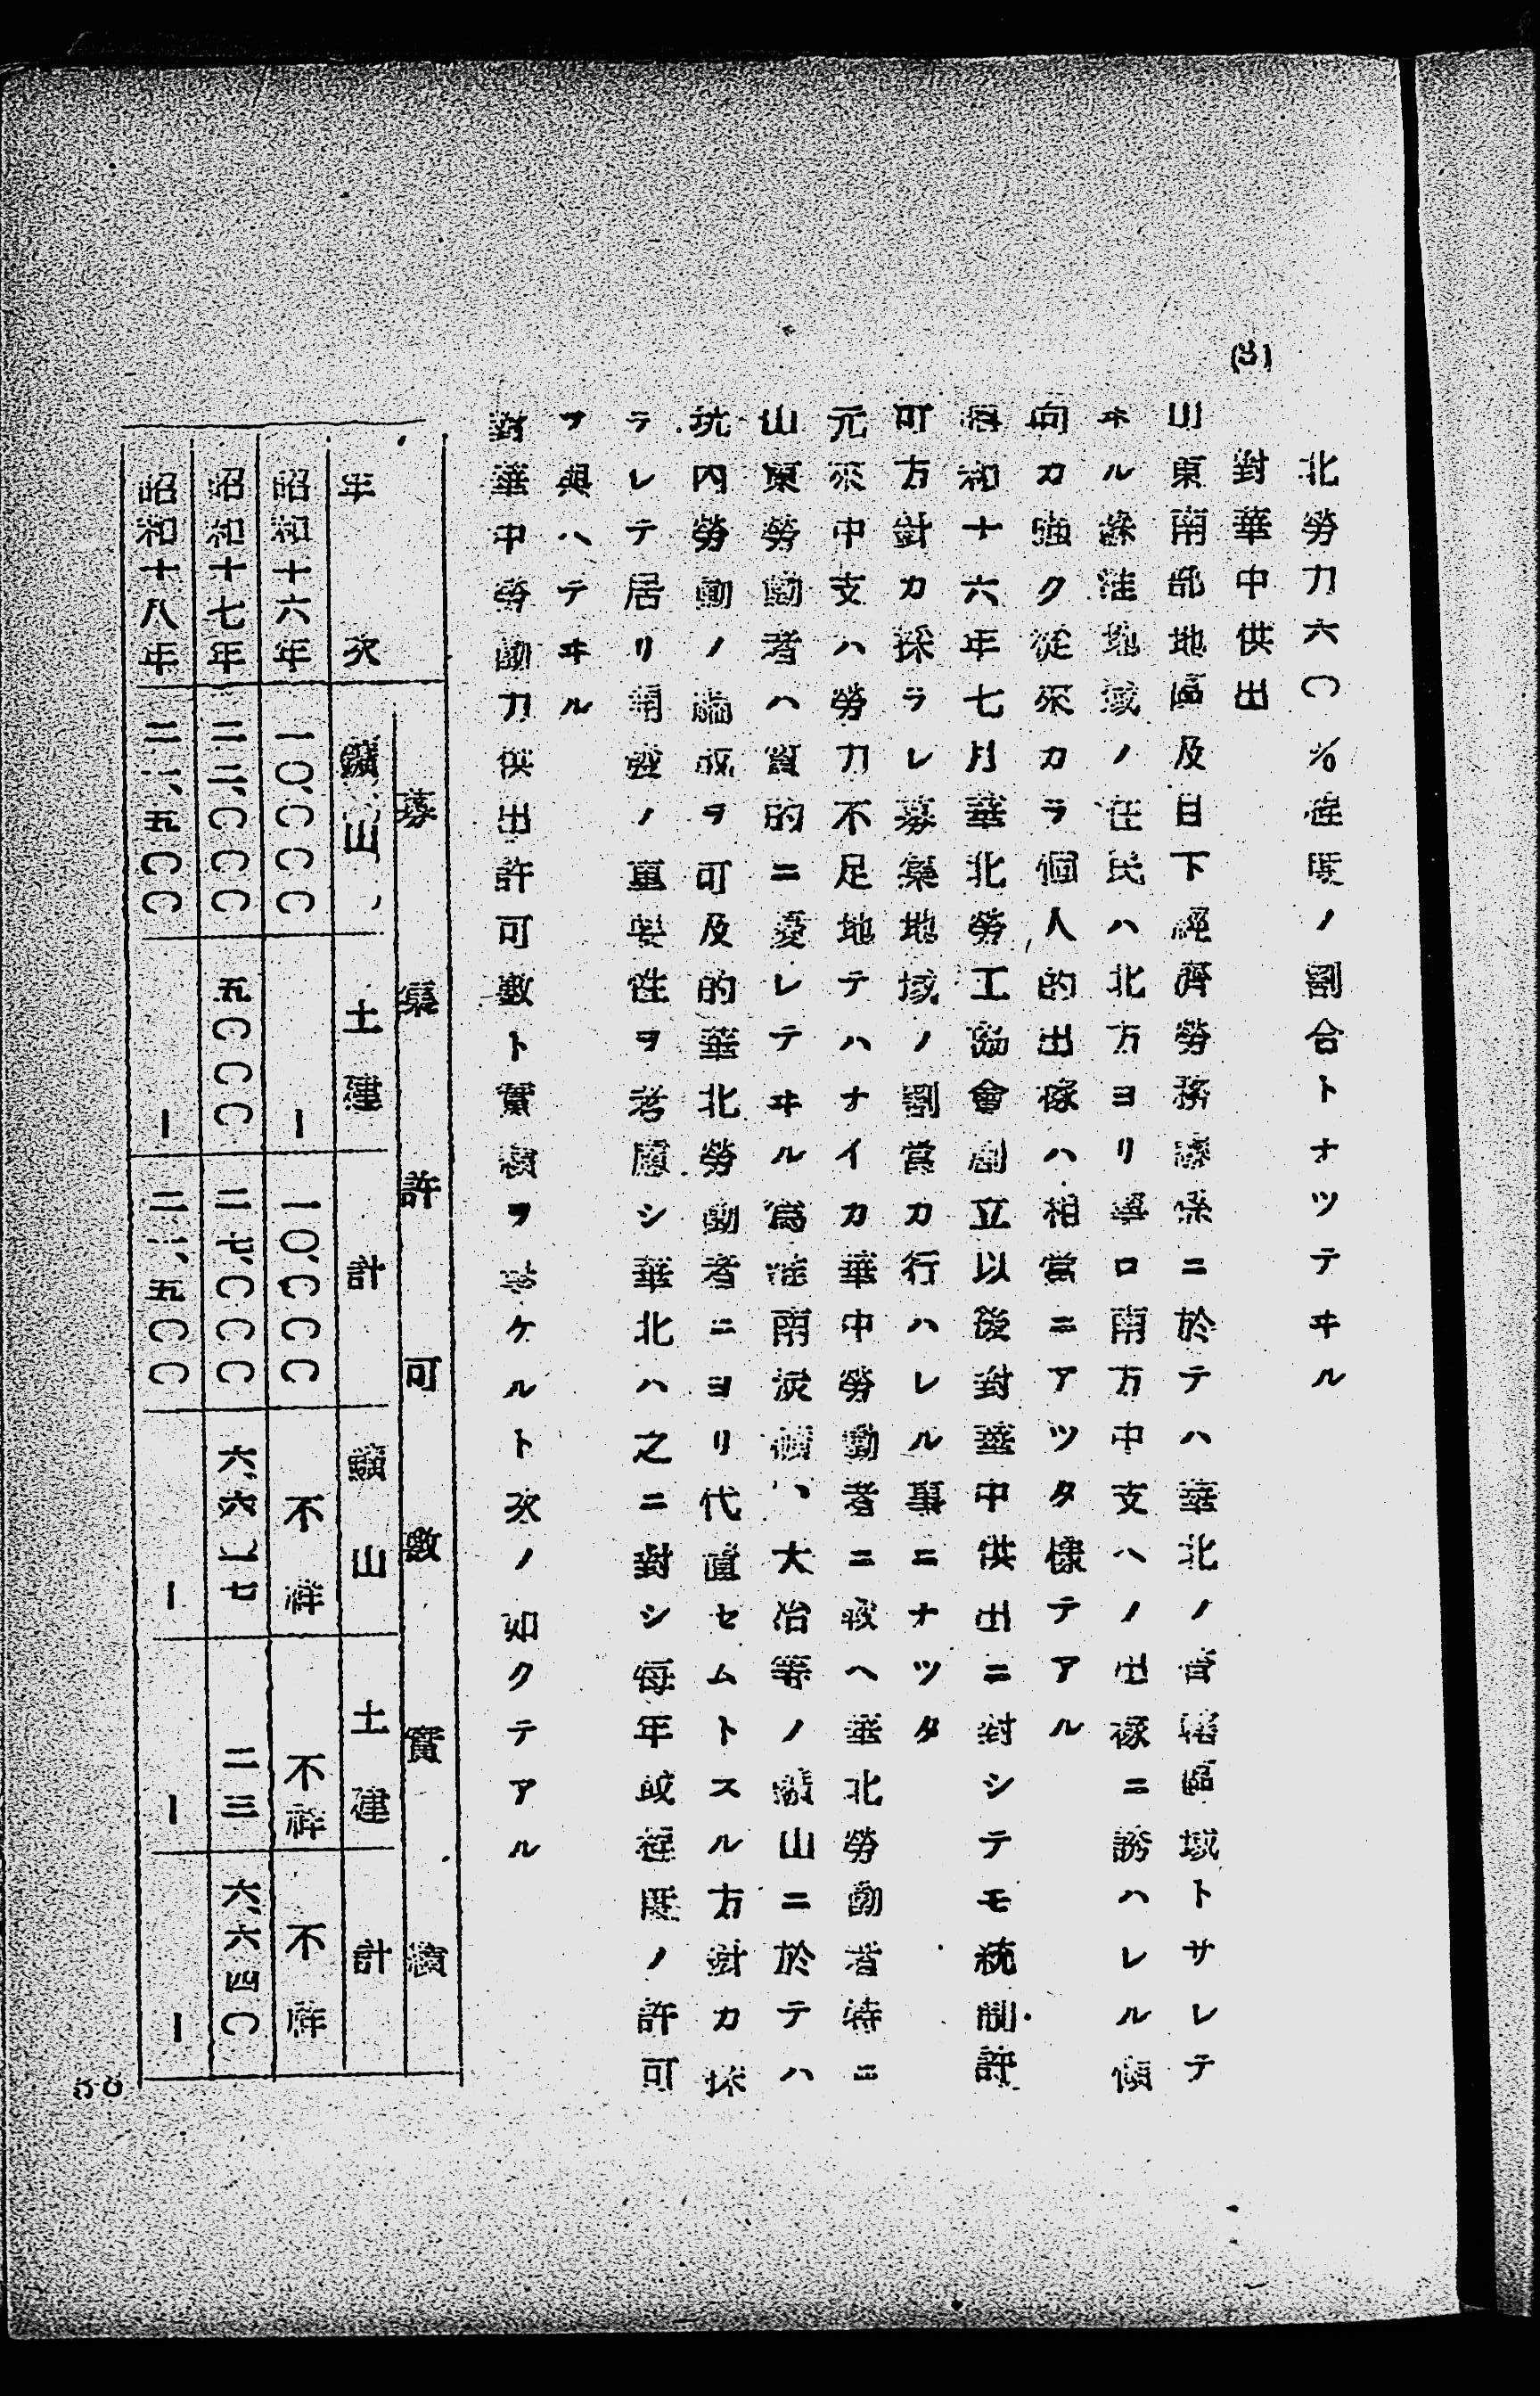 北勞力六〇%程度ノ割合トナツテヰル
(3) 對華中供出
山東南部地區及目下經濟勞務關係ニ於テハ華北ノ省轄區域トサレテ
ヰル蘇淮地域ノ住民ハ北方ヨリ寧ロ南方中支ヘノ出稼ニ誘ハレル傾
向カ強ク從來カラ個人的出稼ハ相當ニアツタ樣テアル
昭和十六年七月華北勞工協會創立以後對華中供出ニ對シテモ統制許
可方針カ採ラレ募集地域ノ割當カ行ハレル事ニナツタ
元來中支ハ勞力不足地テハナイカ華中勞働者ニ較ヘ華北勞働者特ニ
山東勞働者ハ質的ニ優レテヰル爲淮南炭礦、大冶等ノ礦山ニ於テハ
坑内勞働ノ編成ヲ可及的華北勞働者ニヨリ代置セムトスル方針カ採
ラレテ居リ開發ノ重要性ヲ考慮シ華北ハ之ニ對シ每年或程度ノ許可
ヲ與ヘテヰル
對華中勞働力供出許可數ト實績ヲ掲ケルト次ノ如クテアル
募集許可數 實績
年次 鑛山 土建 計 鑛山 土建 計
昭和十六年 一〇、〇〇〇 ー 一〇、〇〇〇 不祥 不祥 不祥
昭和十七年 二二、〇〇〇 五〇〇〇 二七、〇〇〇 六、六一七 二三 六、六四〇
昭和十八年 二一、五〇〇 ー 二一、五〇〇 ー ー ー